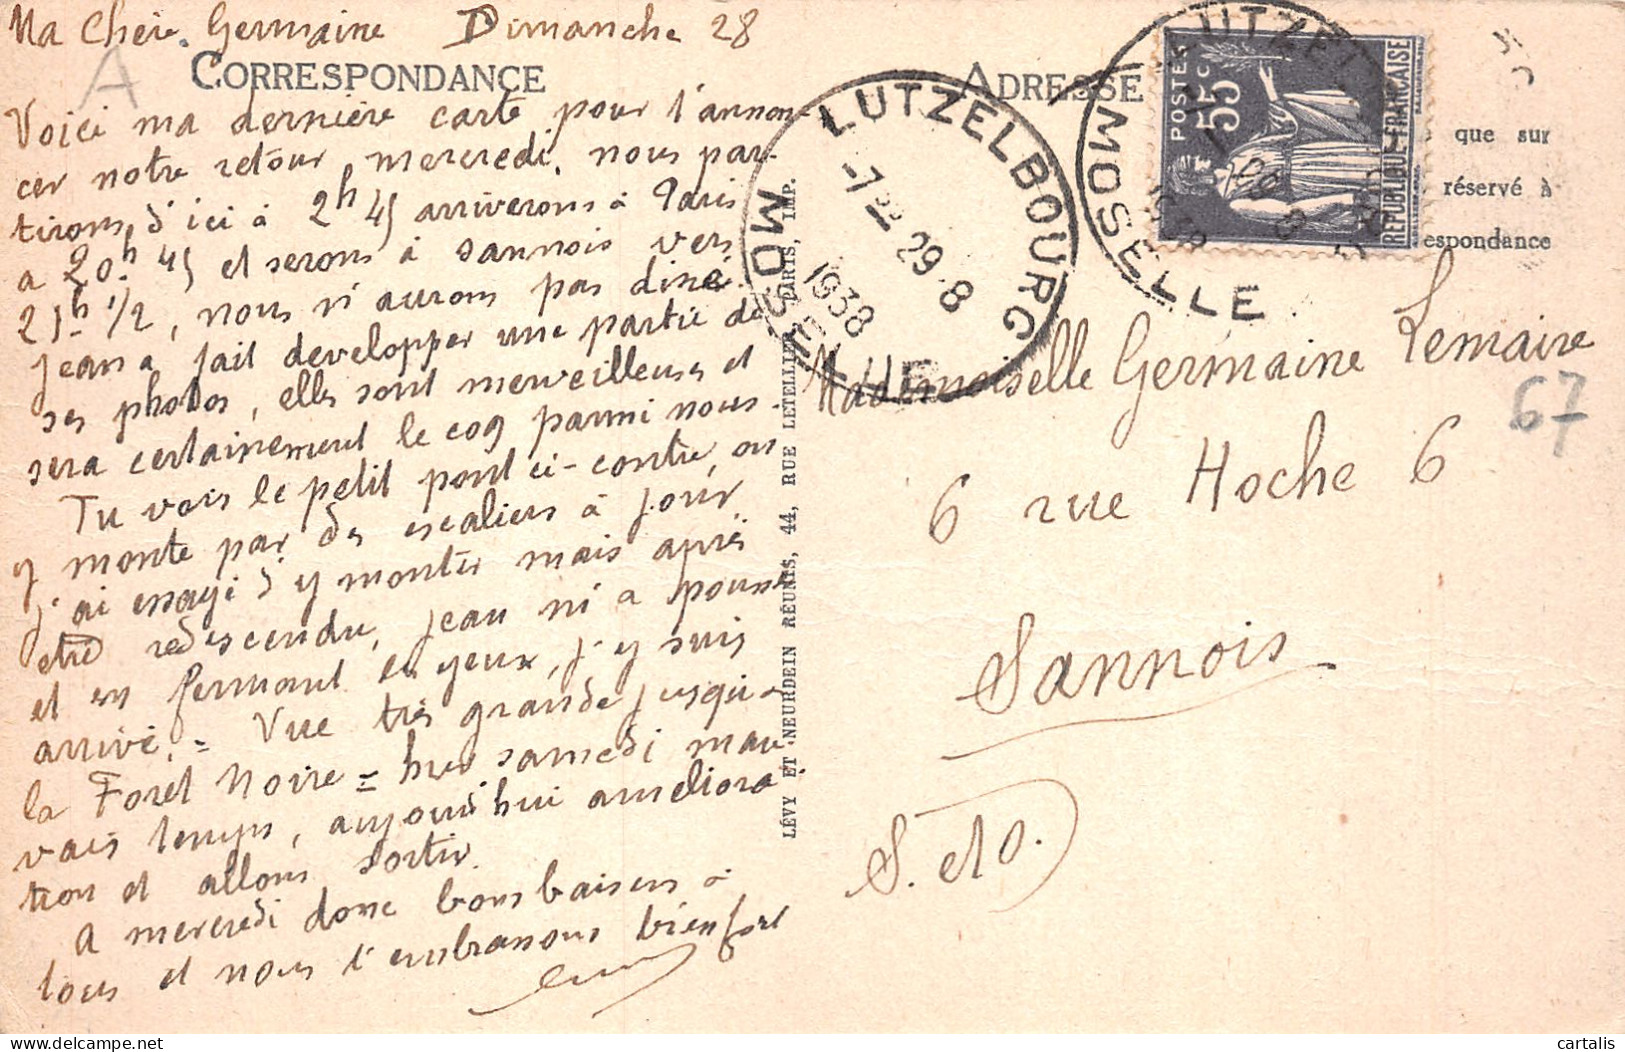 Ma Chère Germaine Dimanche 28
A
CORRESPONDANCE
Voici ma dernière carte pour t'annon-
cer notre retour mercredi. nous par-
tirons d'ici à 2h 45 arriverons à Paris
a 20h 45 et serons à Sannois vers
21h 1/2, nous n'aurons pas diné.
Jean a fait developper une partie de
ses photos, elles sont merveilleuses et
sera certainement le coq parmi nous.
Tu vois le petit pont ci-contre, on
y monte par des escaliers à jour,
j'ai essayé d'y monter mais après
être redescendu, Jean ni a pousser
et en fermant les yeux, j'y suis
arrivé. = Vue très grande jusqu'à
la Foret Noire = hier samedi mau-
vais temps, aujourd'hui ameliora-
tion et allons sortir.
A mercredi donc bons baisers à
tous et nous t'embrassons bien fort
LÉVY ET NEURDEIN RÉUNIS, 44, RUE LETELLIER, PARIS, IMP.
ADRESSE
que sur
réservé à
espondance
POSTES
55c
REPUBLIQUE FRANÇAISE
LUTZELBOURG
MOSELLE
29-8
1938
LUTZEL
MOSELLE
1938
Mademoiselle Germaine Lemaire
67
6 rue Hoche 6
Sannois
S. et O.
cartalis